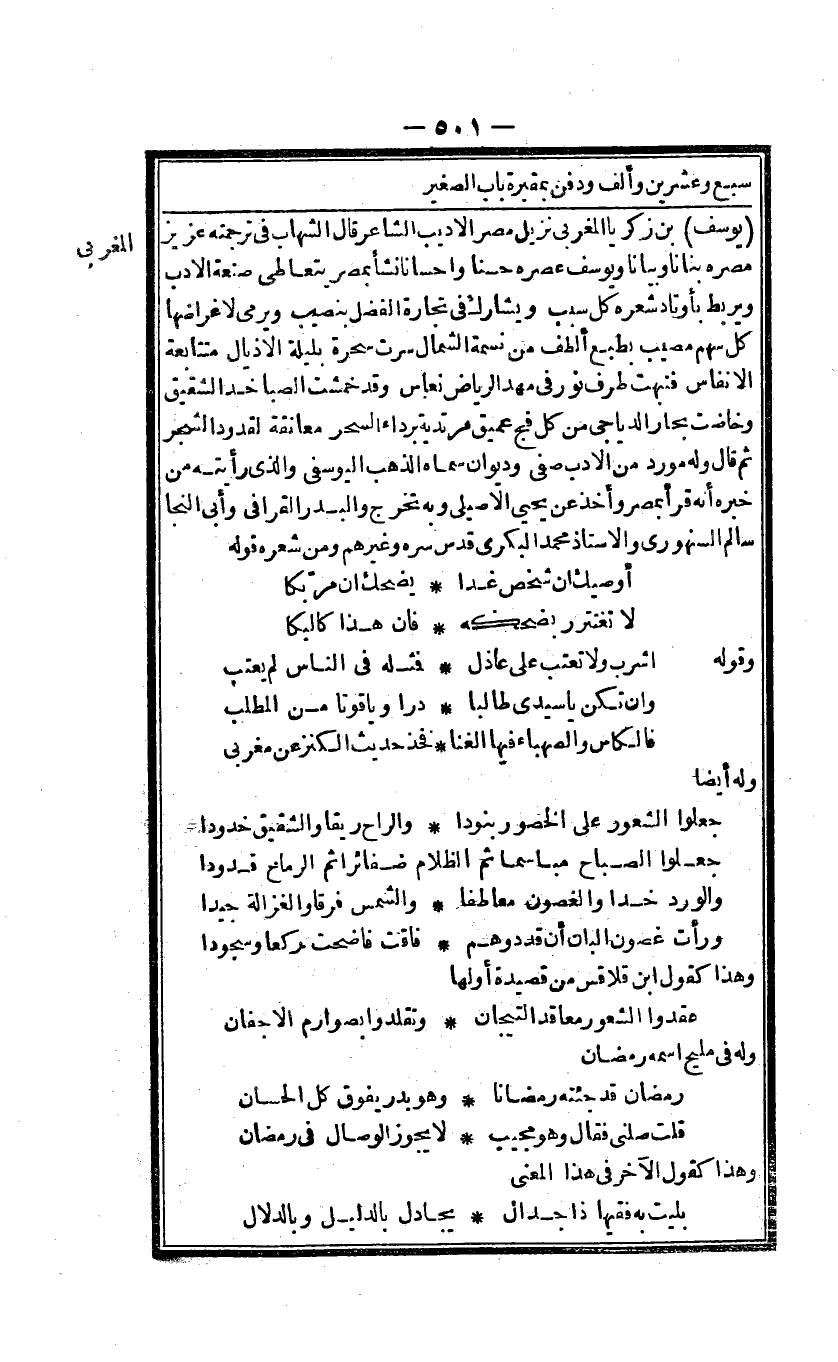 — ٥٠١ —
سبع وعشرين وألف ودفن بمقبرة باب الصغير
(يوسف) بن زكريا المغربى نزيل مصر الاديب الشاعر قال الشهاب فى ترجمته عزيز
المغربى
مصره بنانا وبيانا ويوسف عصره حسنا واحسانا نشأ بمصر يتعاطى صنعة الادب
ويربط بأوتاد شعره كل سبب ويشارك فى تجارة الفضل بنصيب ويرمى لاغراضها
كل سهم مصيب بطبع ألطف من نسمة الشمال سرت سحرة بليلة الاذيال متتابعة
الانفاس فنبهت طرف نور فى مهد الرياض نعاس وقد خمشت الصبا خد الشقيق
وخاضت بحار الدياجى من كل فج عميق مرتدية برداء السحر معانقة لقدود الشجر
ثم قال وله مورد من الادب صفى وديوان سماه الذهب اليوسفى والذى رأيته من
خبره أنه قرأ بمصر وأخذ عن يحيى الاصيلى وبه تخرج والبدر القرافى وأبى النجا
سالم السنهورى والاستاذ محمد البكرى قدس سره وغيرهم ومن شعره قوله
أوصيك ان شخص غدا * يضحك ان مر بكا
لا تغترر بضحكه * فان هذا كالبكا
وقوله اشرب ولا تعتب على عاذل * فمثله فى الناس لم يعتب
وان تكن ياسيدى طالبا * درا وياقوتا من المطلب
فالكاس والصهباء فيها الغنا * فخذ حديث الكنز عن مغربى
وله أيضا
جعلوا الشعور على الخصور بنودا * والراح ريقا والشقيق خدودا
جعلوا الصباح مباسما ثم الظلام ضفائرا ثم الرماح قدودا
والورد خدا والغصون معاطفا * والشمس فرقا والغزالة جيدا
ورأت غصون البان أن قدودهم * فاقت فاضحت ركعا وسجودا
وهذا كقول ابن قلاقس من قصيدة أولها
عقدوا الشعور معاقد التيجان * وتقلدوا بصوارم الاجفان
وله فى مليح اسمه رمضان
رمضان قد جئته رمضانا * وهو بدر يفوق كل الحسان
قلت صلنى فقال وهو مجيب * لا يجوز الوصال فى رمضان
وهذا كقول الآخر فى هذا المعنى
بليت به فقيها ذا جدال * يجادل بالدليل وبالدلال